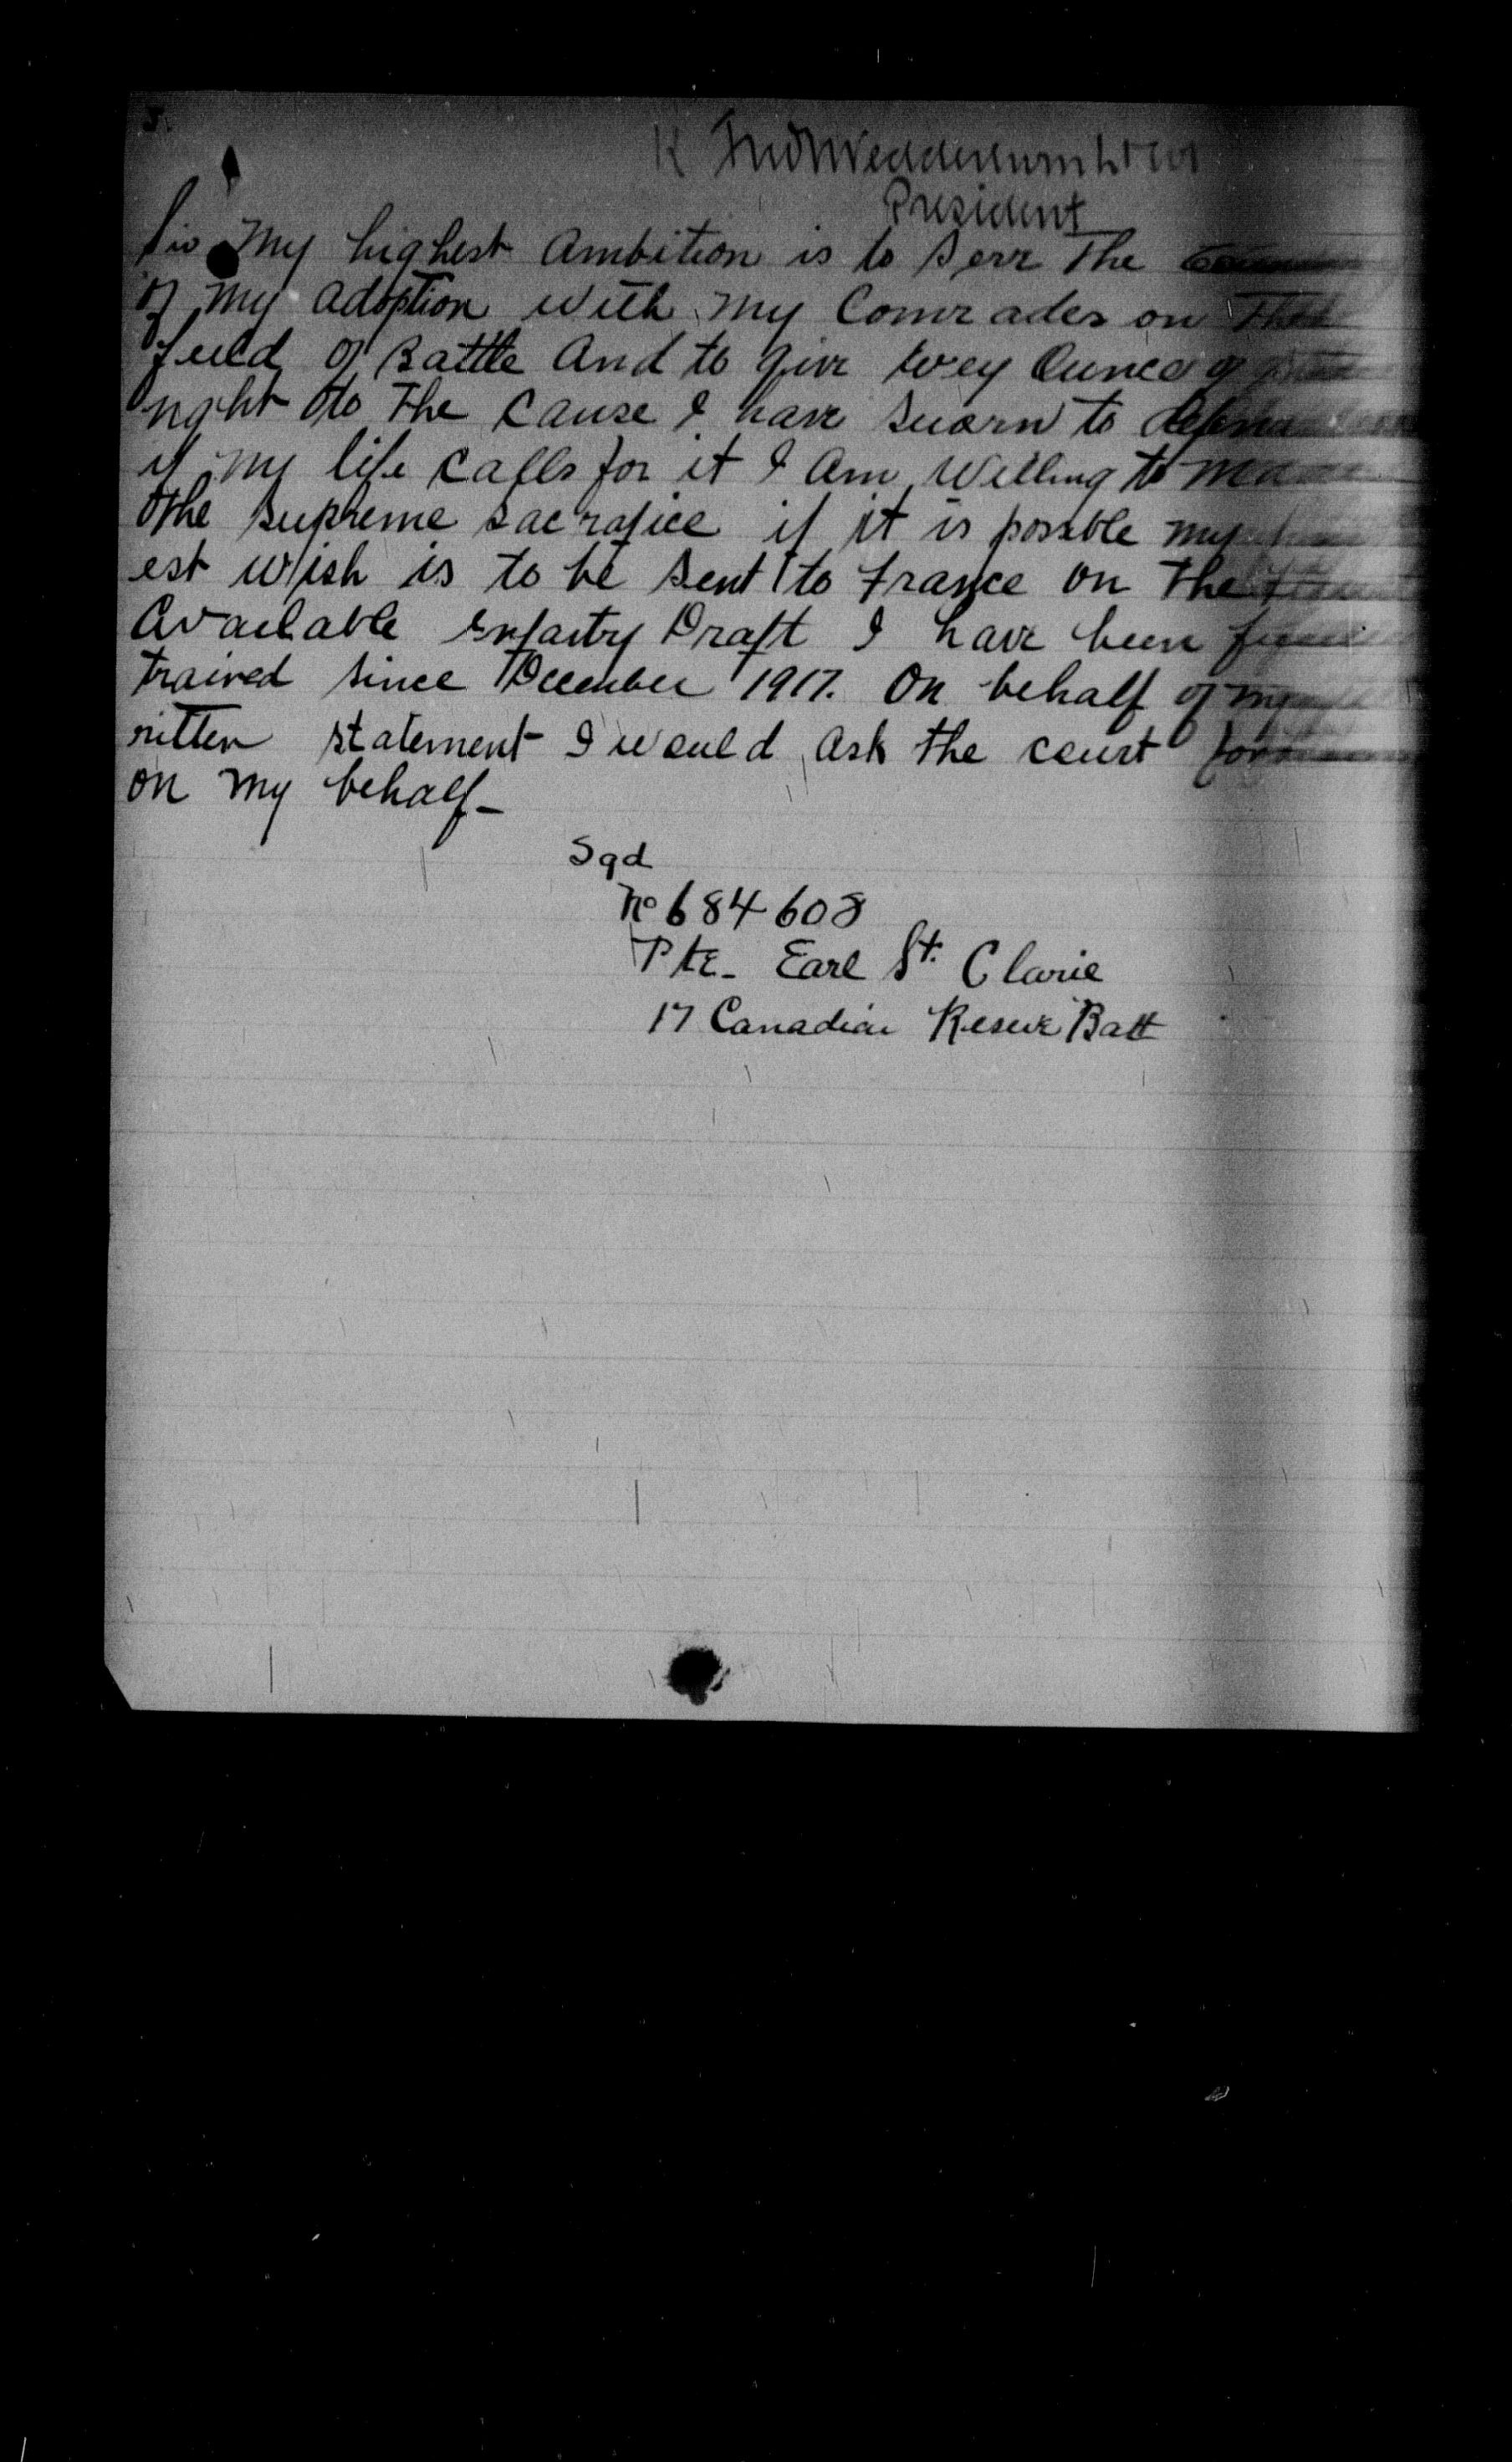 President
Sir My highest Ambition is to Serv The
of My Adoption with My Comrades on The
feild of Battle And to give every Ounce of
right to The Cause I have Suorn to
if my life Calls for it I Am Willing to
the Supreme Sacrafice if it is possble my
est wish is to be Sent to france on The
Available Enfastry Draft I have been
trained since December 1917. On behalf of my
ritten statement I would Ask the court for
on my behalf-
Sgd
No 684608
Pte- Earl St. Clarie
17 Canadian Reseve Batt